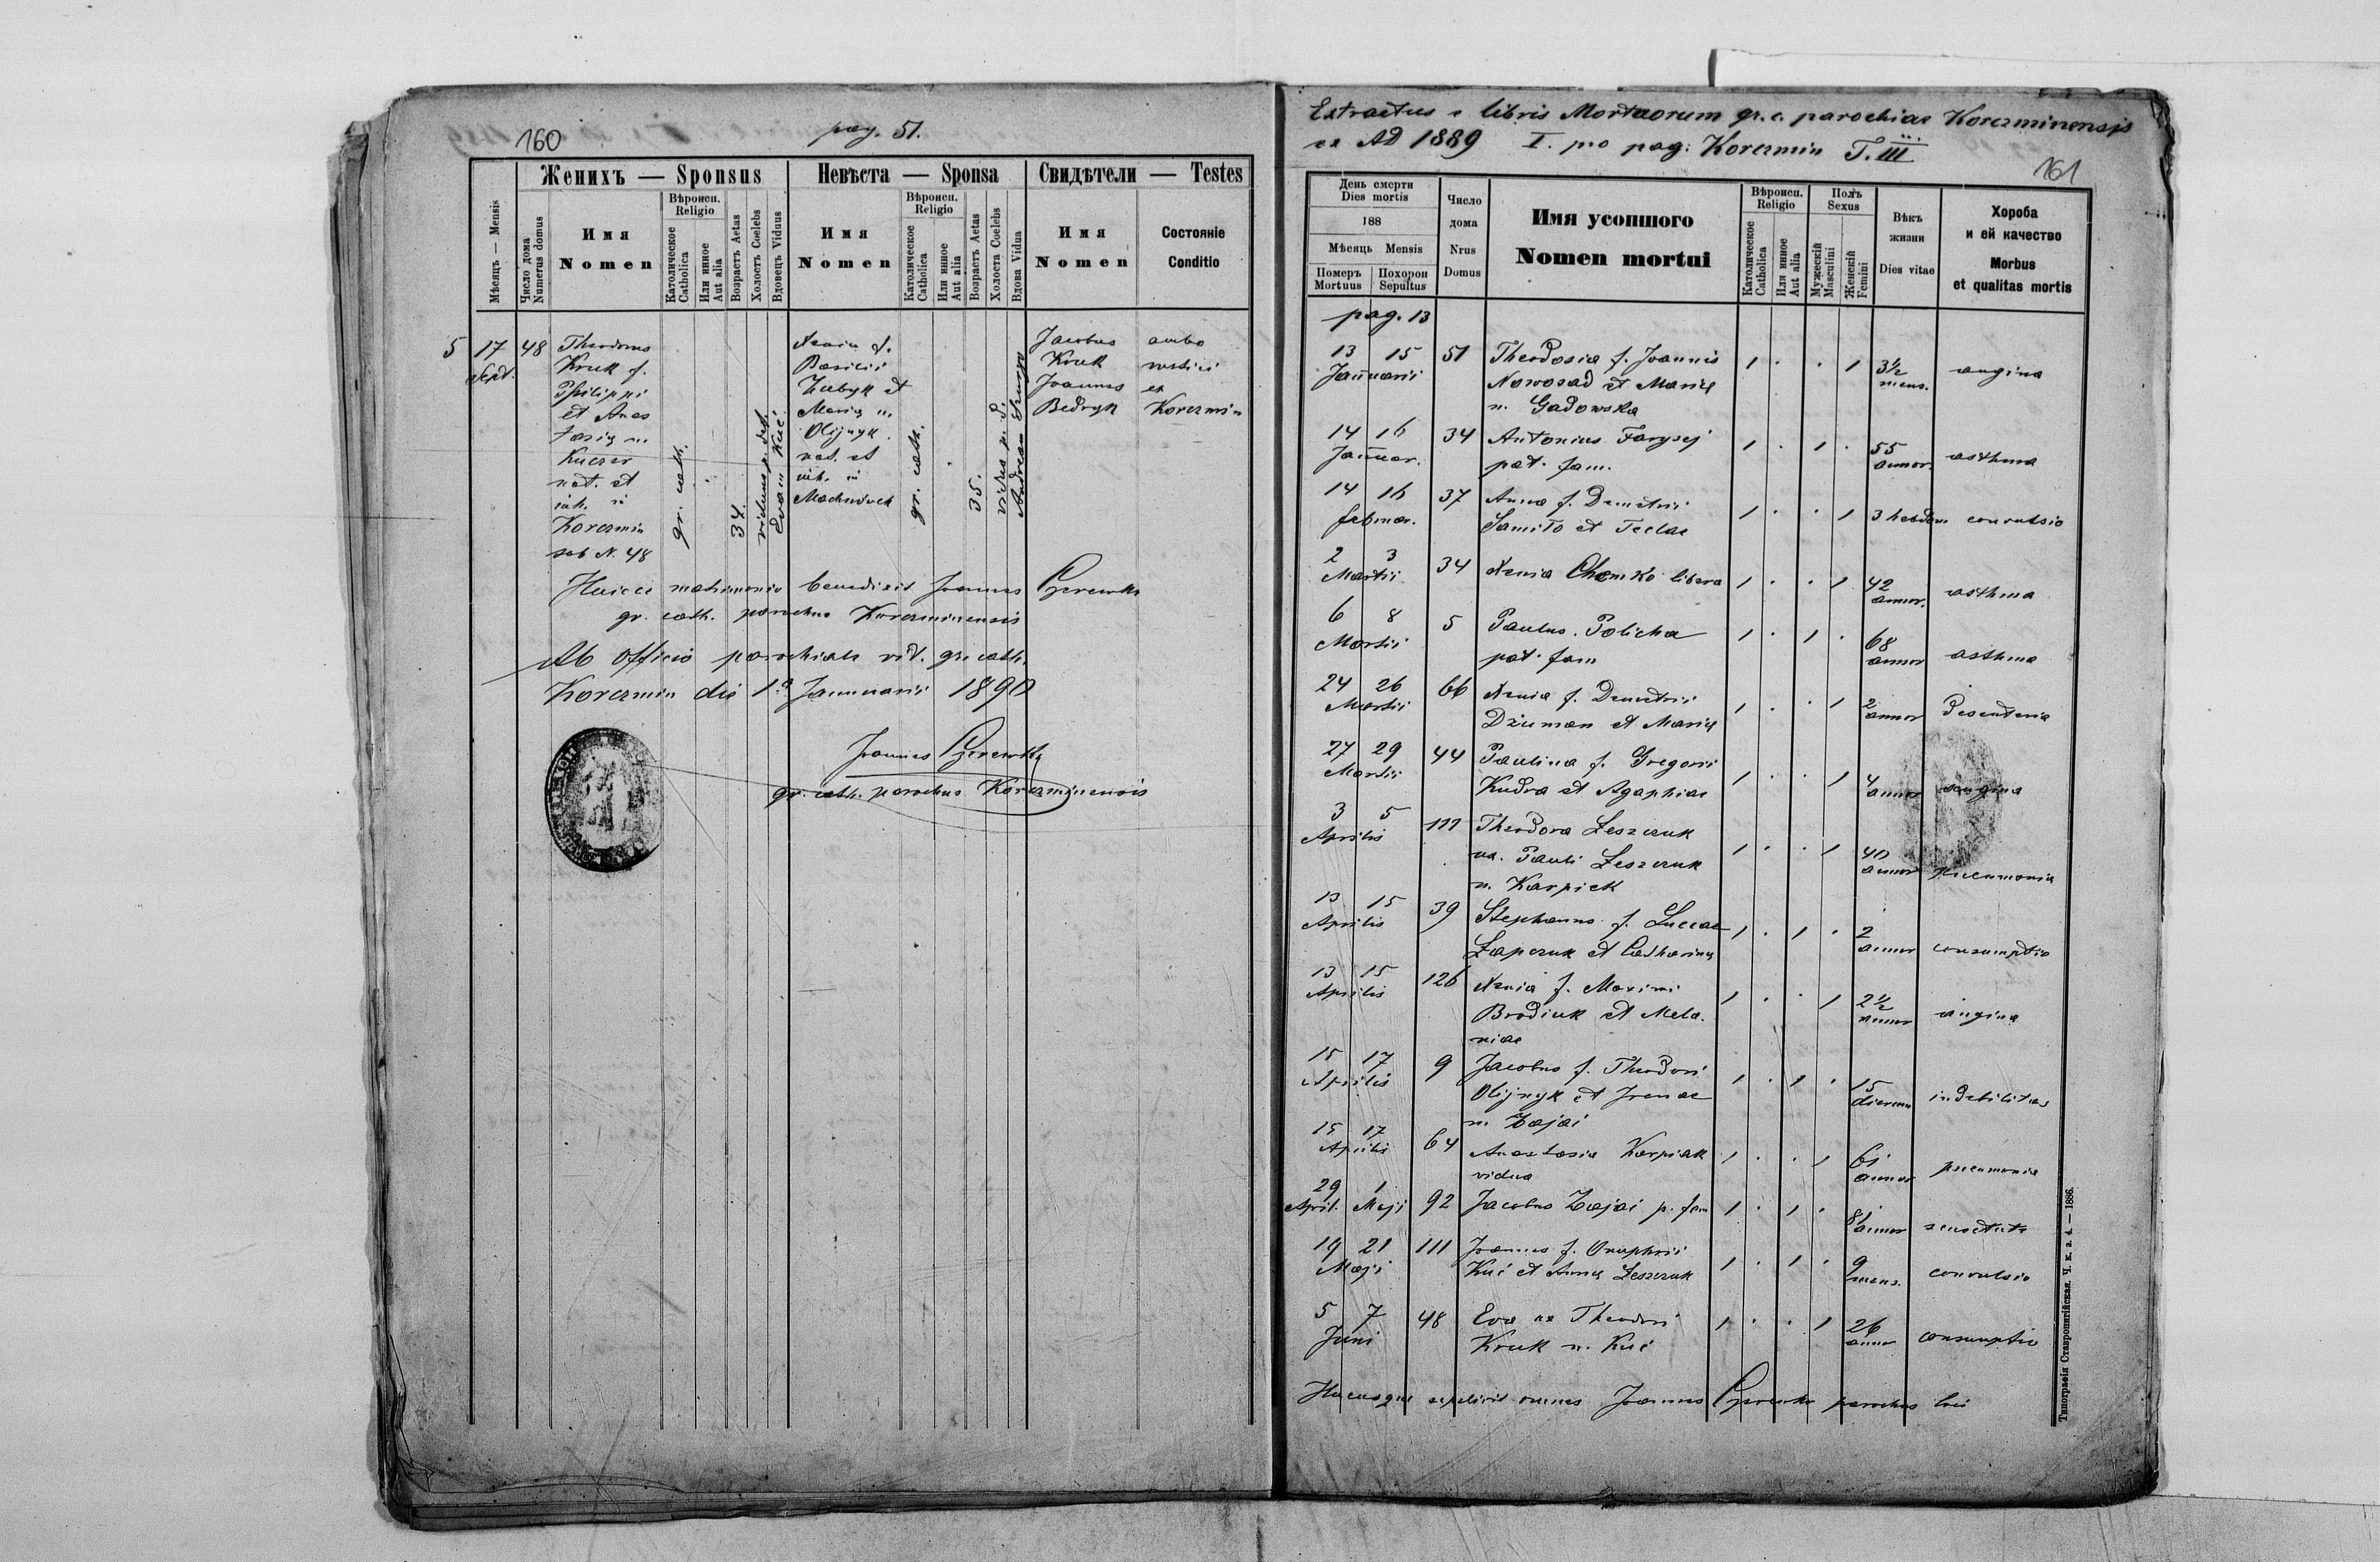 160
pag. 51.
Женихъ — Sponsus
Невѣста — Sponsa
Свидѣтели — Testes
Мѣсяцъ — Mensis
Число дома
Numerus domus
Имя
Nomen
Вѣроисп.
Religio
Католическое
Catholica
Или инное
Aut alia
Возрастъ Aetas
Холостъ Coelebs
Вдовецъ Viduus
Имя
Nomen
Вѣроисп.
Religio
Католическое
Catholica
Или инное
Aut alia
Возрастъ Aetas
Холоста Coelebs
Вдова Vidua
Имя
Nomen
Состояніе
Conditio
5 17 48
Sept.
Theodorus
Kruk f.
Philippi
et Anas
tasię n.
Kuczer
nat. et
inh. in
Korczmin
sub N. 48
gr. cath.
34.
viduus p. def.
Evam Kuć
Xenia f.
Basilii
Zubyk et
Marię n.
Olijnyk
nat. et
inh. in
Machnówek
gr. cath.
35.
vidua p. d.
Andream
Jacobus
Kruk
Joannes
Bedryk
ambo
rustici
ex
Korczmin
Huicce matrimonio benedixit Joannes
gr. cath. parochus Korczminensis
Ab officio parochiali rit. gr. cath.
Korczmin die 1a Januarii 1890
Joannes
gr. cath. parochus Korczminensis
Extractus e libris Mortuorum gr. c. parochiae Korczminensis
ex AD 1889 I. pro pag: Korczmin T. III
161
День смерти
Dies mortis
188
Мѣсяцъ Mensis
Померъ Похорон
Mortuus Sepultus
Число
дома
Nrus
Domus
Имя усопшого
Nomen mortui
Вѣроисп.
Religio
Католическое
Catholica
Или инное
Aut alia
Полъ
Sexus
Мужескій
Masculini
Женскій
Femini
Вѣкъ
жизни
Dies vitae
Хороба
и ей качество
Morbus
et qualitas mortis
pag. 13
13 15 51 Theodosia f. Joannis 1 . . 1 3½ angina
Januarii Nowosad et Marię mens.
n. Gadowska
14 16 34 Antonius Farysej 1 . 1 . 55 asthma
Januar. pat. fam. annor.
14 16 37 Anna f. Demetrii 1 . . 1 3 hebdom convulsio
februar. Samiło et Teclae
2 3 34 Xenia Chomko libera 1 . . 1 42 asthma
Martii annor.
6 8 5 Paulus Policha 1 . 1 . 68 asthma
Martii pat. fam annor
24 26 66 Xenia f. Demetrii 1 . . 1 2 desenteria
Martii Dziuman et Marię annor
27 29 44 Paulina f. Gregorii 1 . . 1 4 angina
Martii Kudra et Agaphiae annor
3 5 111 Theodora Leszczuk 1 . . 1 40 pneumonia
Aprilis ux. Pauli Leszczuk annor
n. Karpiek
13 15 39 Stephanus f. Luccae 1 . 1 . 2 consumptio
Aprilis Łapczuk et Catharinę annor
13 15 126 Xenia f. Maximi 1 . . 1 2½ angina
Aprilis Brodiuk et Mela- annor
niae
15 17 9 Jacobus f. Theodori 1 . 1 . 15 indebilitas
Aprilis Olijnyk et Irenae dierum
n. Zając
15 17 64 Anastasia Karpiak 1 . . 1 61 pneumonia
Aprilis vidua annor
29 1 92 Jacobus Zając p. fam 1 . 1 . 81 senectute
April. Maji annor
19 21 111 Joannes f. Onuphrii 1 . 1 . 9 convulsio
Maji Kuć et Annę Leszczuk mens.
5 7 48 Eva ux Theodori 1 . . 1 26 consumptio
Juni Kruk n. Kuć annor
Hucusque sepelivit omnes Joannes parochus loci
Типографія Ставропигійская. Ч. к. з. 4. — 1886.